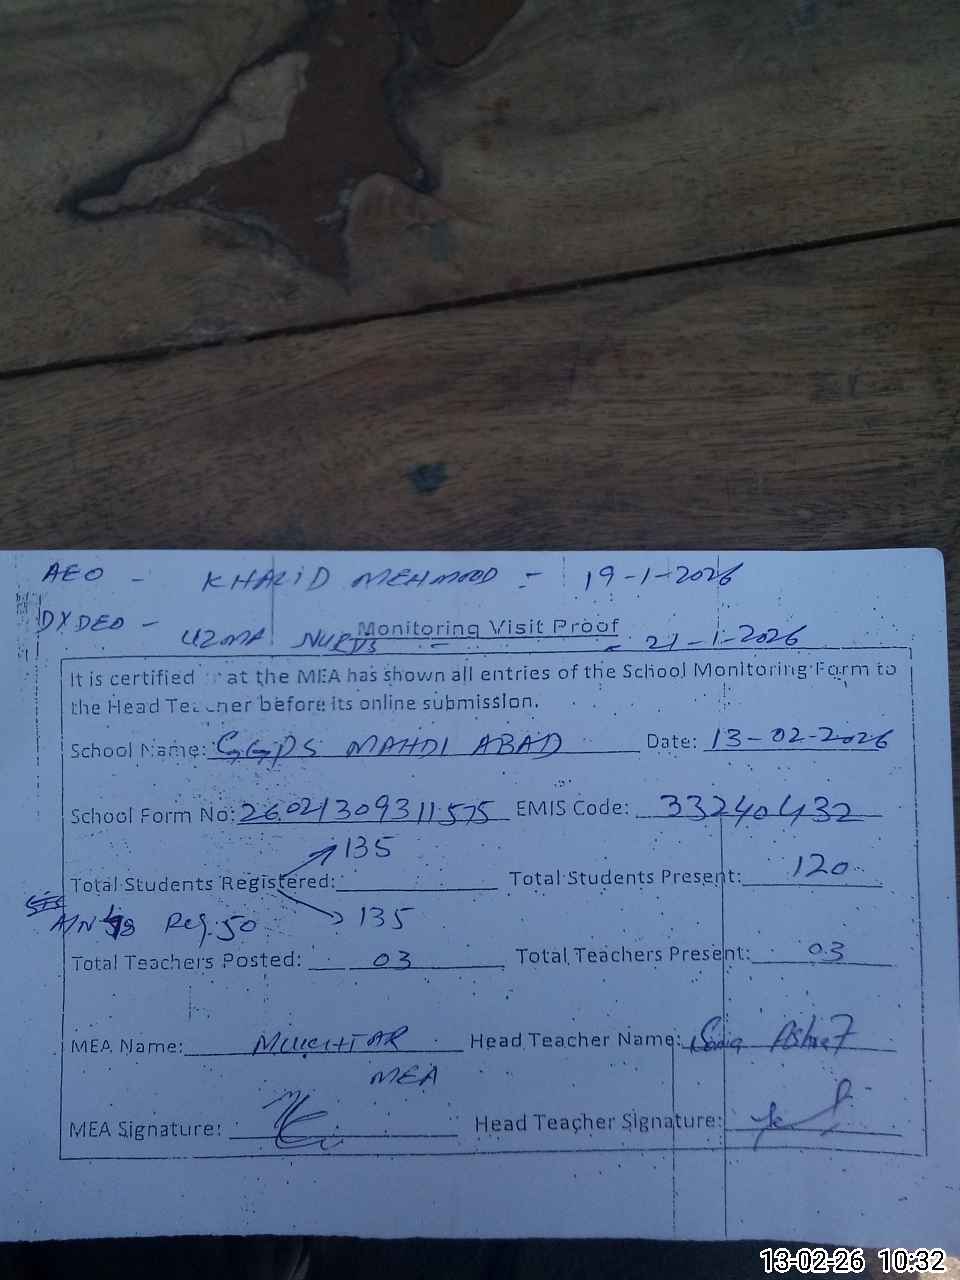 AEO - KHALID MEHMOOD - 19-1-2026
DYDEO - UZMA - 21-1-2026
Monitoring Visit Proof
It is certified at the MEA has shown all entries of the School Monitoring Form to
the Head Teacher before its online submission.
School Name: GGPS MAHDI ABAD Date: 13-02-2026
School Form No: 26021309311575 EMIS Code: 33240432
135
Total Students Registered: Total Students Present: 120
A/N Reg. 50 135
Total Teachers Posted: 03 Total Teachers Present: 03
MEA Name: MUKHTAR Head Teacher Name: Sonia Ashraf
MEA
MEA Signature: Head Teacher Signature:
13-02-26 10:32